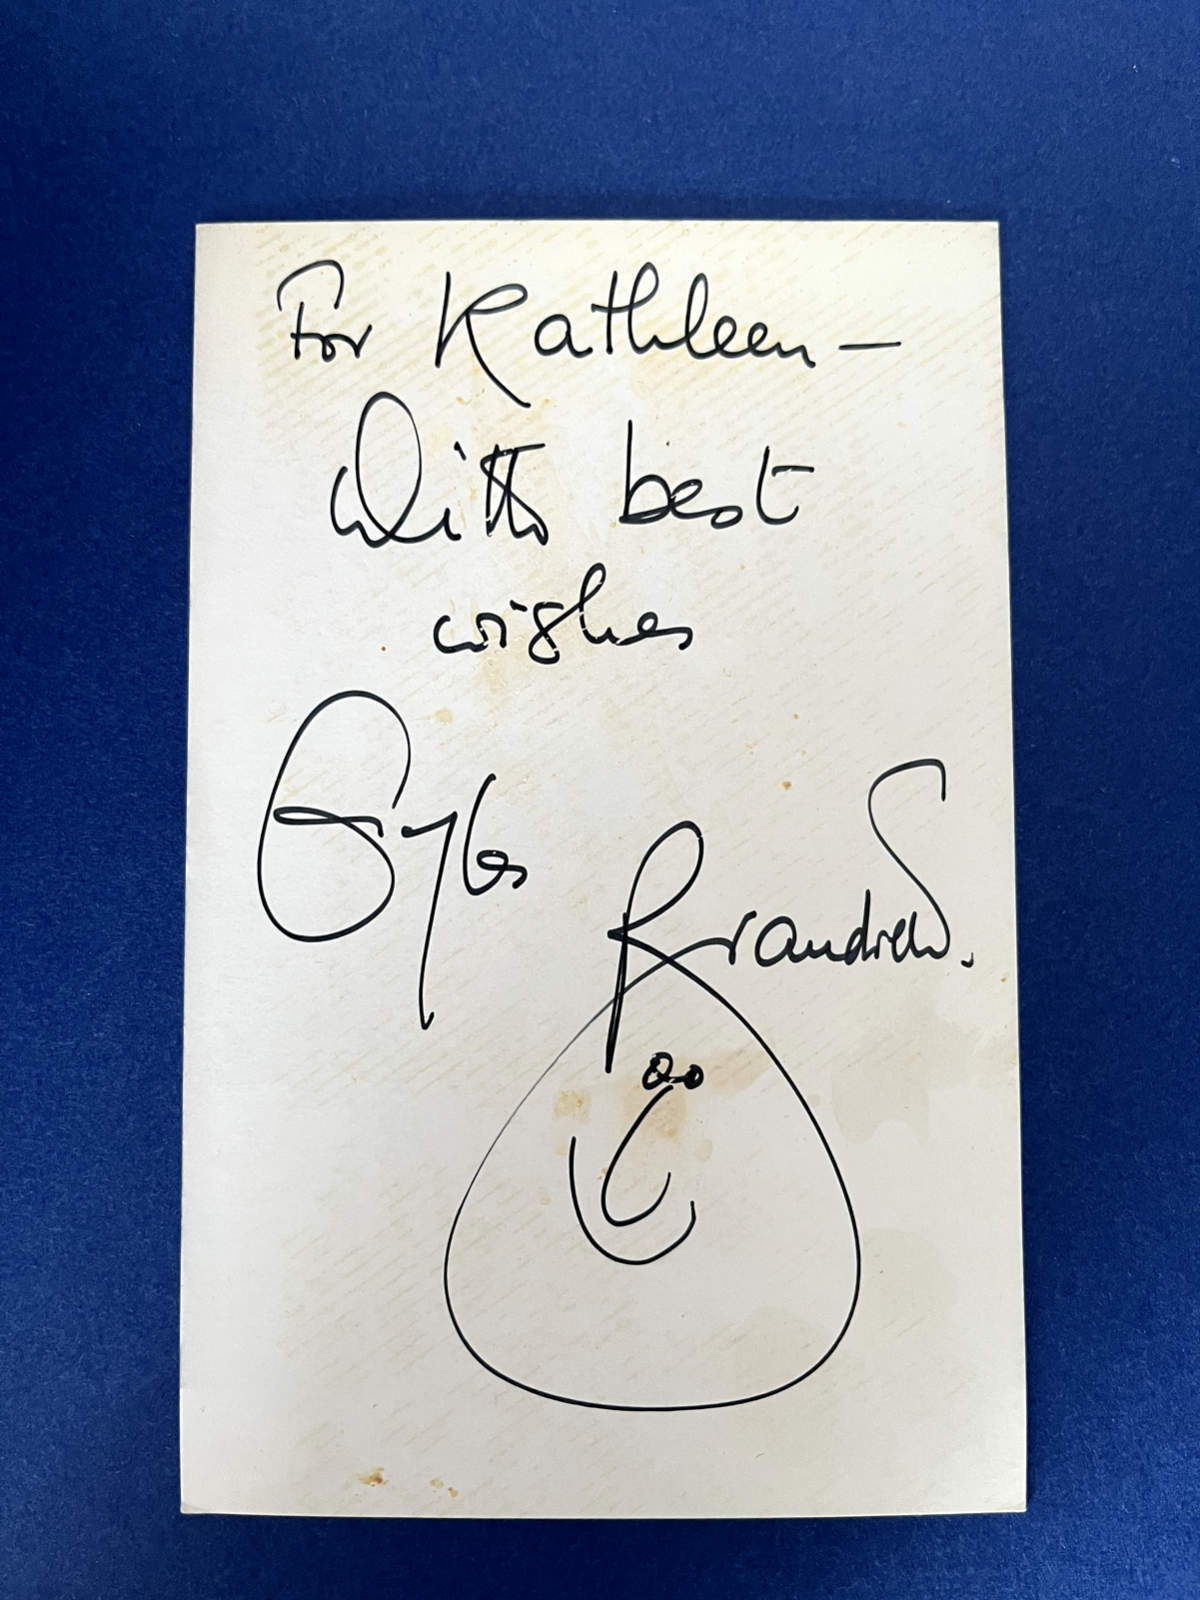 For Kathleen –
With best
wishes
Gyles
Brandreth.